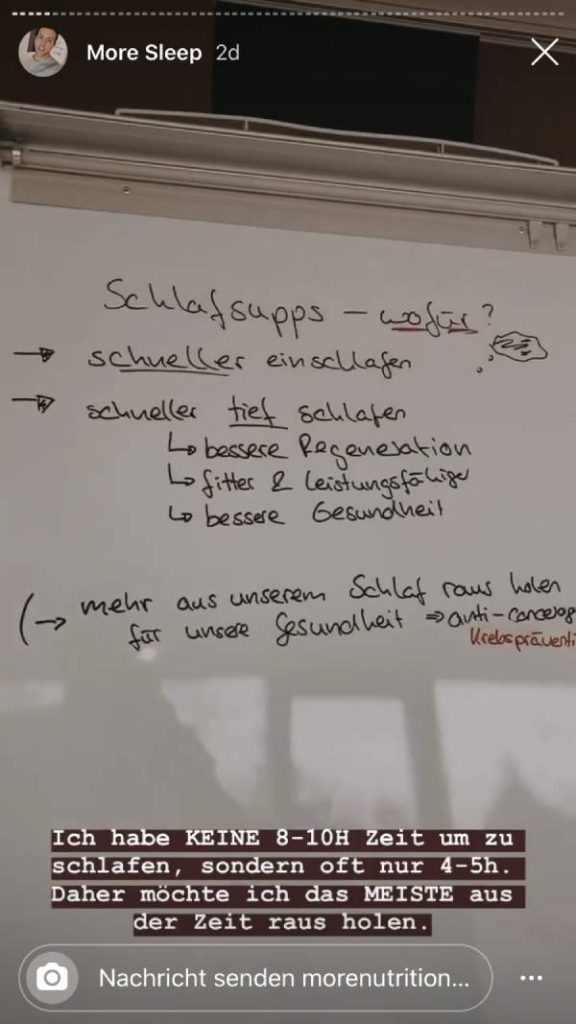 More Sleep 2d
Schlafsupps – wofür?
→ schneller einschlafen
→ schneller tief schlafen
↳ bessere Regeneration
↳ fitter & leistungsfähiger
↳ bessere Gesundheit
(→ mehr aus unserem Schlaf raus holen
für unsere Gesundheit ⇒ anti-
Krebspräventi
Ich habe KEINE 8-10H Zeit um zu
schlafen, sondern oft nur 4-5h.
Daher möchte ich das MEISTE aus
der Zeit raus holen.
Nachricht senden morenutrition...